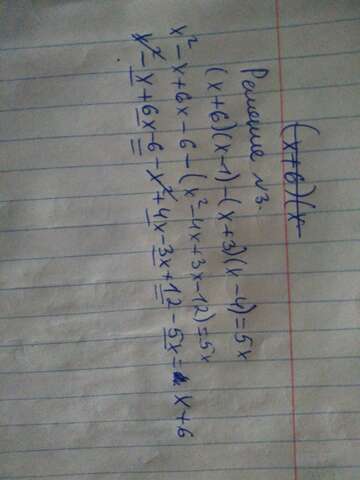 (x+6)(x-
Решение №3.
(x+6)(x-1)-(x+3)(x-4)=5x
x²-x+6x-6-(x²-4x+3x-12)=5x
x²-x+6x-6-x²+4x-3x+12-5x= x+6